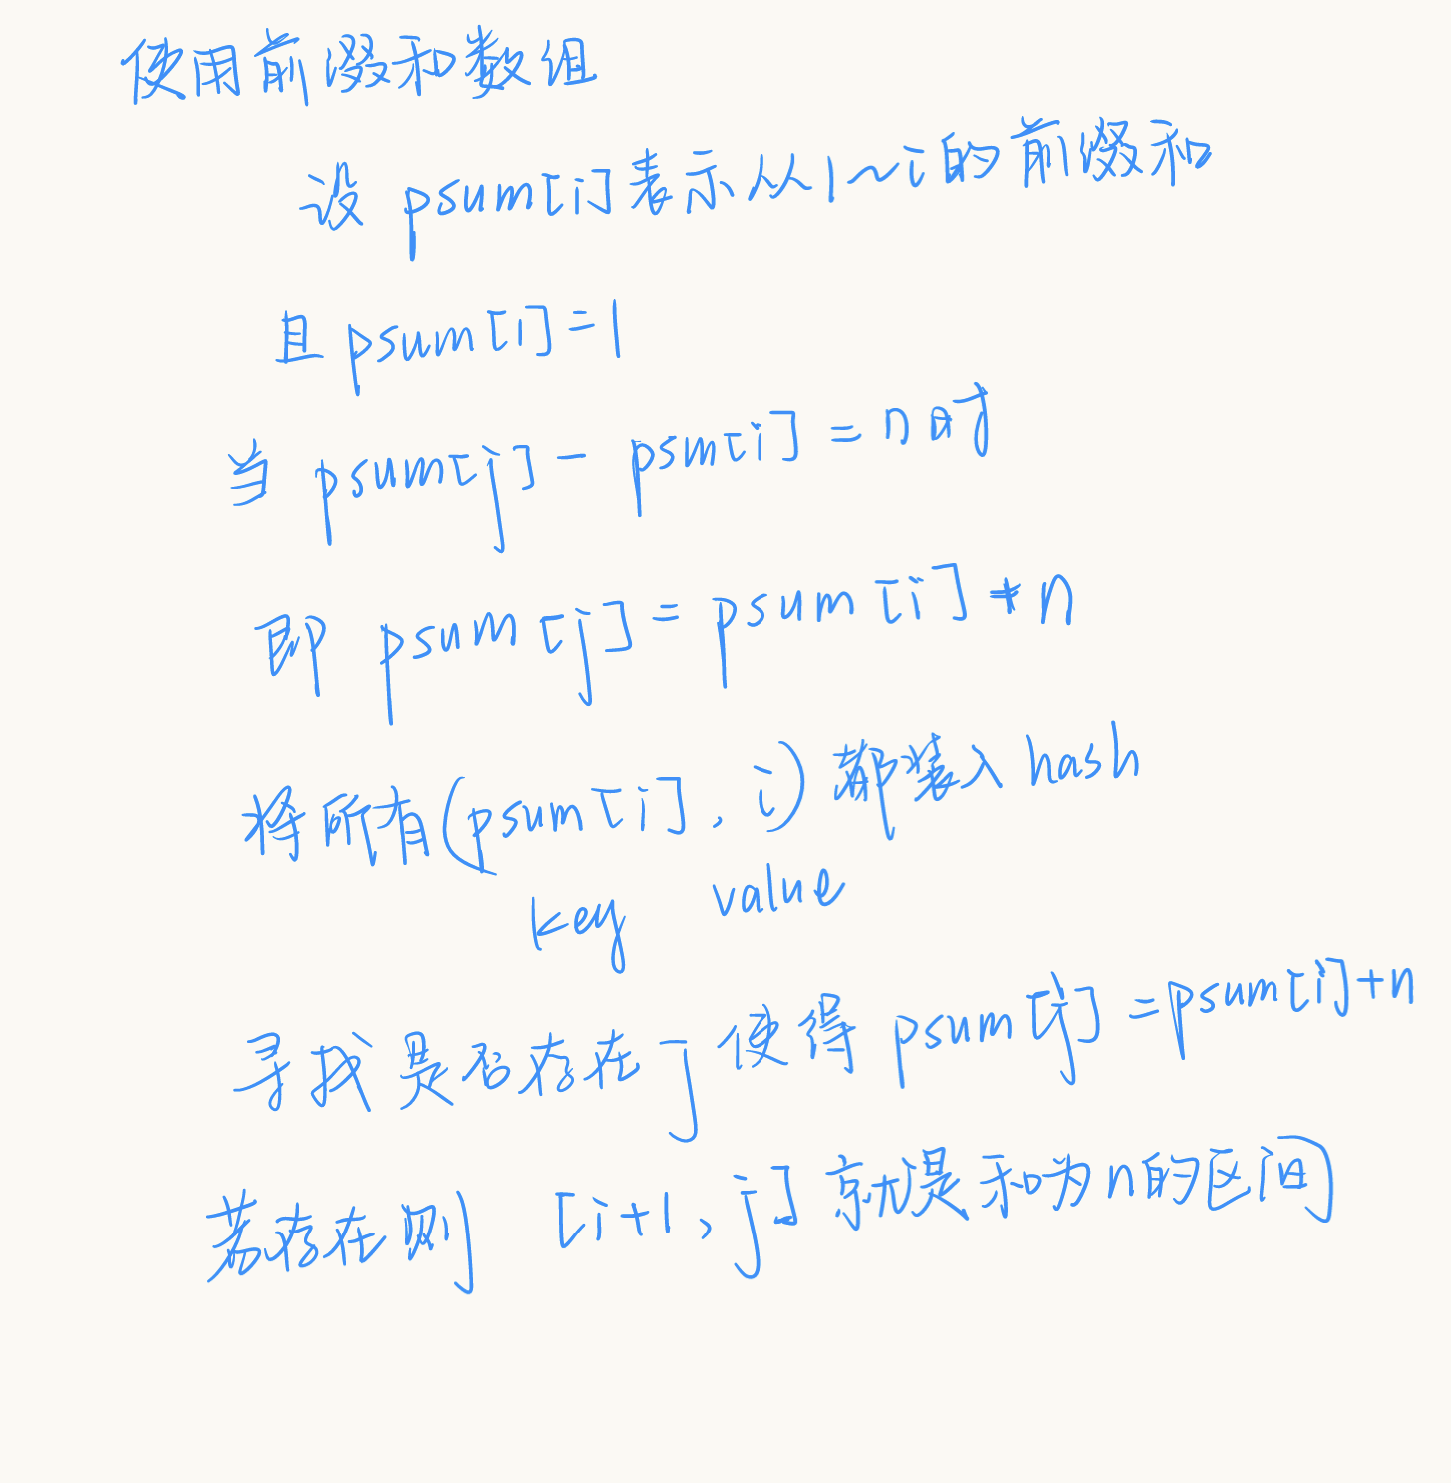 使用前缀和数组
设 psum[i]表示从1~i的前缀和
且 psum[i]=1
当 psum[j] - psm[i] = n 时
即 psum[j] = psum[i] + n
将所有(psum[i], i)都装入 hash
key value
寻找是否存在 j 使得 psum[j] = psum[i]+n
若存在则 [i+1, j] 就是和为n的区间